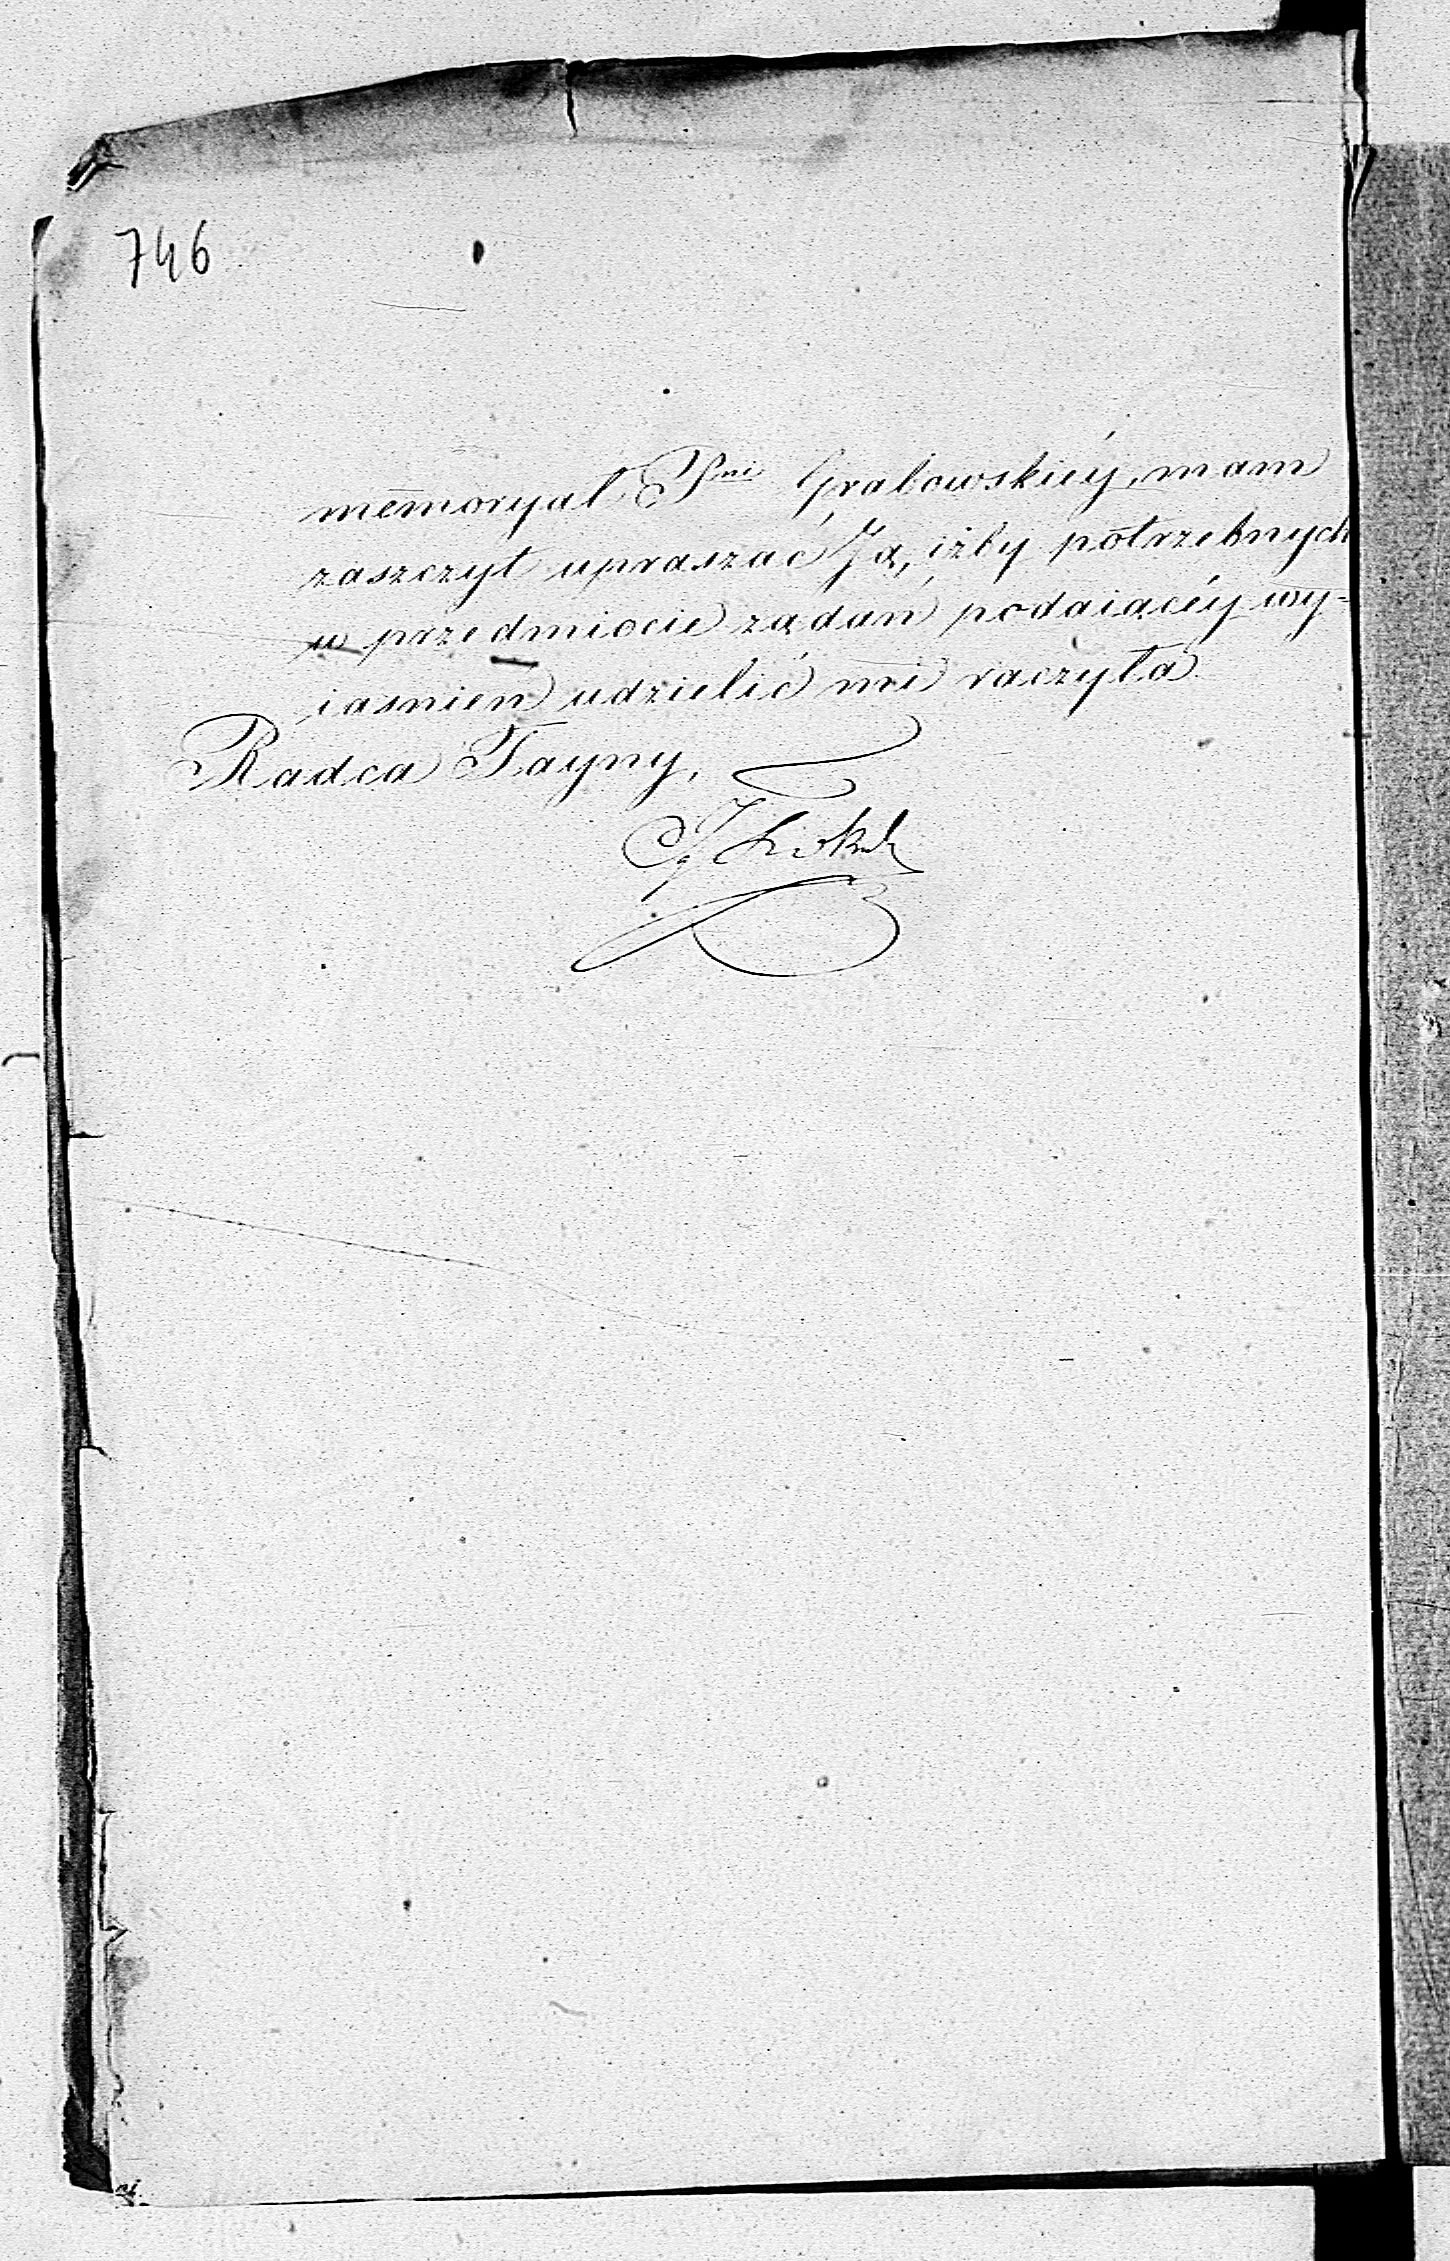 746
memoryał P<sup>ni</sup> Grabowskiéy, mam
zaszczyt upraszać Ją, iżby potrzebnych
w przedmiocie żądań podaiącéy wy-
iasnien udzielić mi raczyła
Radca Tayny,